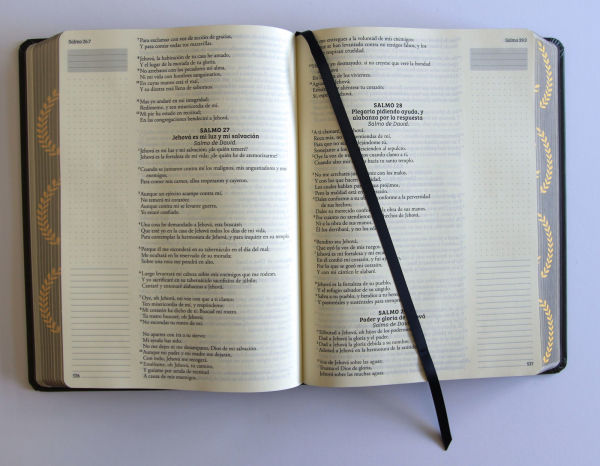 Salmo 26.7
7 Para exclamar con voz de acción de gracias,
Y para contar todas tus maravillas.
8 Jehová, la habitación de tu casa he amado,
Y el lugar de la morada de tu gloria.
9 No arrebates con los pecadores mi alma,
Ni mi vida con hombres sanguinarios,
10 En cuyas manos está el mal,
Y su diestra está llena de sobornos.
11 Mas yo andaré en mi integridad;
Redímeme, y ten misericordia de mí.
12 Mi pie ha estado en rectitud;
En las congregaciones bendeciré a Jehová.
SALMO 27
Jehová es mi luz y mi salvación
Salmo de David.
1 Jehová es mi luz y mi salvación; ¿de quién temeré?
Jehová es la fortaleza de mi vida; ¿de quién he de atemorizarme?
2 Cuando se juntaron contra mí los malignos, mis angustiadores y mis
enemigos,
Para comer mis carnes, ellos tropezaron y cayeron.
3 Aunque un ejército acampe contra mí,
No temerá mi corazón;
Aunque contra mí se levante guerra,
Yo estaré confiado.
4 Una cosa he demandado a Jehová, ésta buscaré;
Que esté yo en la casa de Jehová todos los días de mi vida,
Para contemplar la hermosura de Jehová, y para inquirir en su templo.
5 Porque él me esconderá en su tabernáculo en el día del mal;
Me ocultará en lo reservado de su morada;
Sobre una roca me pondrá en alto.
6 Luego levantará mi cabeza sobre mis enemigos que me rodean,
Y yo sacrificaré en su tabernáculo sacrificios de júbilo;
Cantaré y entonaré alabanzas a Jehová.
7 Oye, oh Jehová, mi voz con que a ti clamo;
Ten misericordia de mí, y respóndeme.
8 Mi corazón ha dicho de ti: Buscad mi rostro.
Tu rostro buscaré, oh Jehová;
9 No escondas tu rostro de mí.
No apartes con ira a tu siervo;
Mi ayuda has sido.
No me dejes ni me desampares, Dios de mi salvación.
10 Aunque mi padre y mi madre me dejaran,
Con todo, Jehová me recogerá.
11 Enséñame, oh Jehová, tu camino,
Y guíame por senda de rectitud
A causa de mis enemigos.
536
Salmo 29.3
entregues a la voluntad de mis enemigos;
se han levantado contra mí testigos falsos, y los
crueldad.
desmayado, si no creyese que veré la bondad
En la tierra de los vivientes.
Jehová;
aliéntese tu corazón;
Sí, Jehová.
SALMO 28
Plegaria pidiendo ayuda, y
alabanza por la respuesta
Salmo de David.
1 A ti clamaré, oh Jehová.
Roca mía, no te desentiendas de mí,
Para que no sea yo, dejándome tú,
Semejante a los que descienden al sepulcro.
2 Oye la voz de mis ruegos cuando clamo a ti,
Cuando alzo mis manos hacia tu santo templo.
3 No me arrebates juntamente con los malos,
Y con los que hacen iniquidad,
Los cuales hablan paz con sus prójimos,
Pero la maldad está en su corazón.
4 Dales conforme a su obra, y conforme a la perversidad
de sus hechos;
Dales su merecido conforme a la obra de sus manos.
5 Por cuanto no atendieron a los hechos de Jehová,
Ni a la obra de sus manos,
Él los derribará, y no los edificará.
6 Bendito sea Jehová,
Que oyó la voz de mis ruegos.
7 Jehová es mi fortaleza y mi escudo;
En él confió mi corazón, y fui ayudado,
Por lo que se gozó mi corazón,
Y con mi cántico le alabaré.
8 Jehová es la fortaleza de su pueblo,
Y el refugio salvador de su ungido.
9 Salva a tu pueblo, y bendice a tu heredad;
Y pastoréales y susténtales para siempre.
SALMO 29
Poder y gloria de Jehová
Salmo de David.
1 Tributad a Jehová, oh hijos de los poderosos,
Dad a Jehová la gloria y el poder.
2 Dad a Jehová la gloria debida a su nombre;
Adorad a Jehová en la hermosura de la santidad.
3 Voz de Jehová sobre las aguas;
Truena el Dios de gloria,
Jehová sobre las muchas aguas.
537